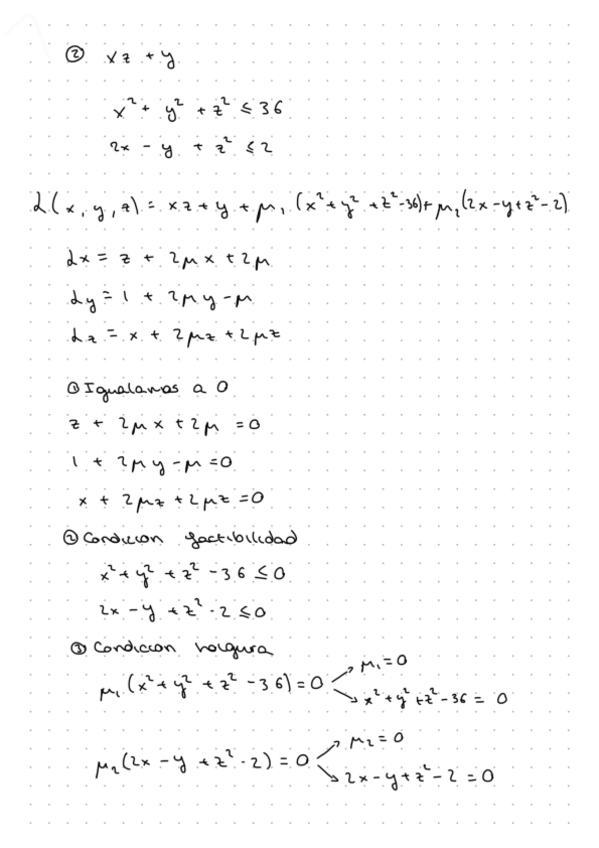 ② xz + y
x² + y² + z² ≤ 36
2x - y + z² ≤ 2
L(x, y, z) = xz + y + μ₁ (x² + y² + z² - 36) + μ₂ (2x - y + z² - 2)
Lx = z + 2μx + 2μ
Ly = 1 + 2μy - μ
Lz = x + 2μz + 2μz
① Igualamos a 0
z + 2μx + 2μ = 0
1 + 2μy - μ = 0
x + 2μz + 2μz = 0
② Condicion factibilidad
x² + y² + z² - 36 ≤ 0
2x - y + z² - 2 ≤ 0
③ Condicion holgura
μ₁ = 0
μ₁ (x² + y² + z² - 36) = 0
x² + y² + z² - 36 = 0
μ₂ = 0
μ₂ (2x - y + z² - 2) = 0
2x - y + z² - 2 = 0